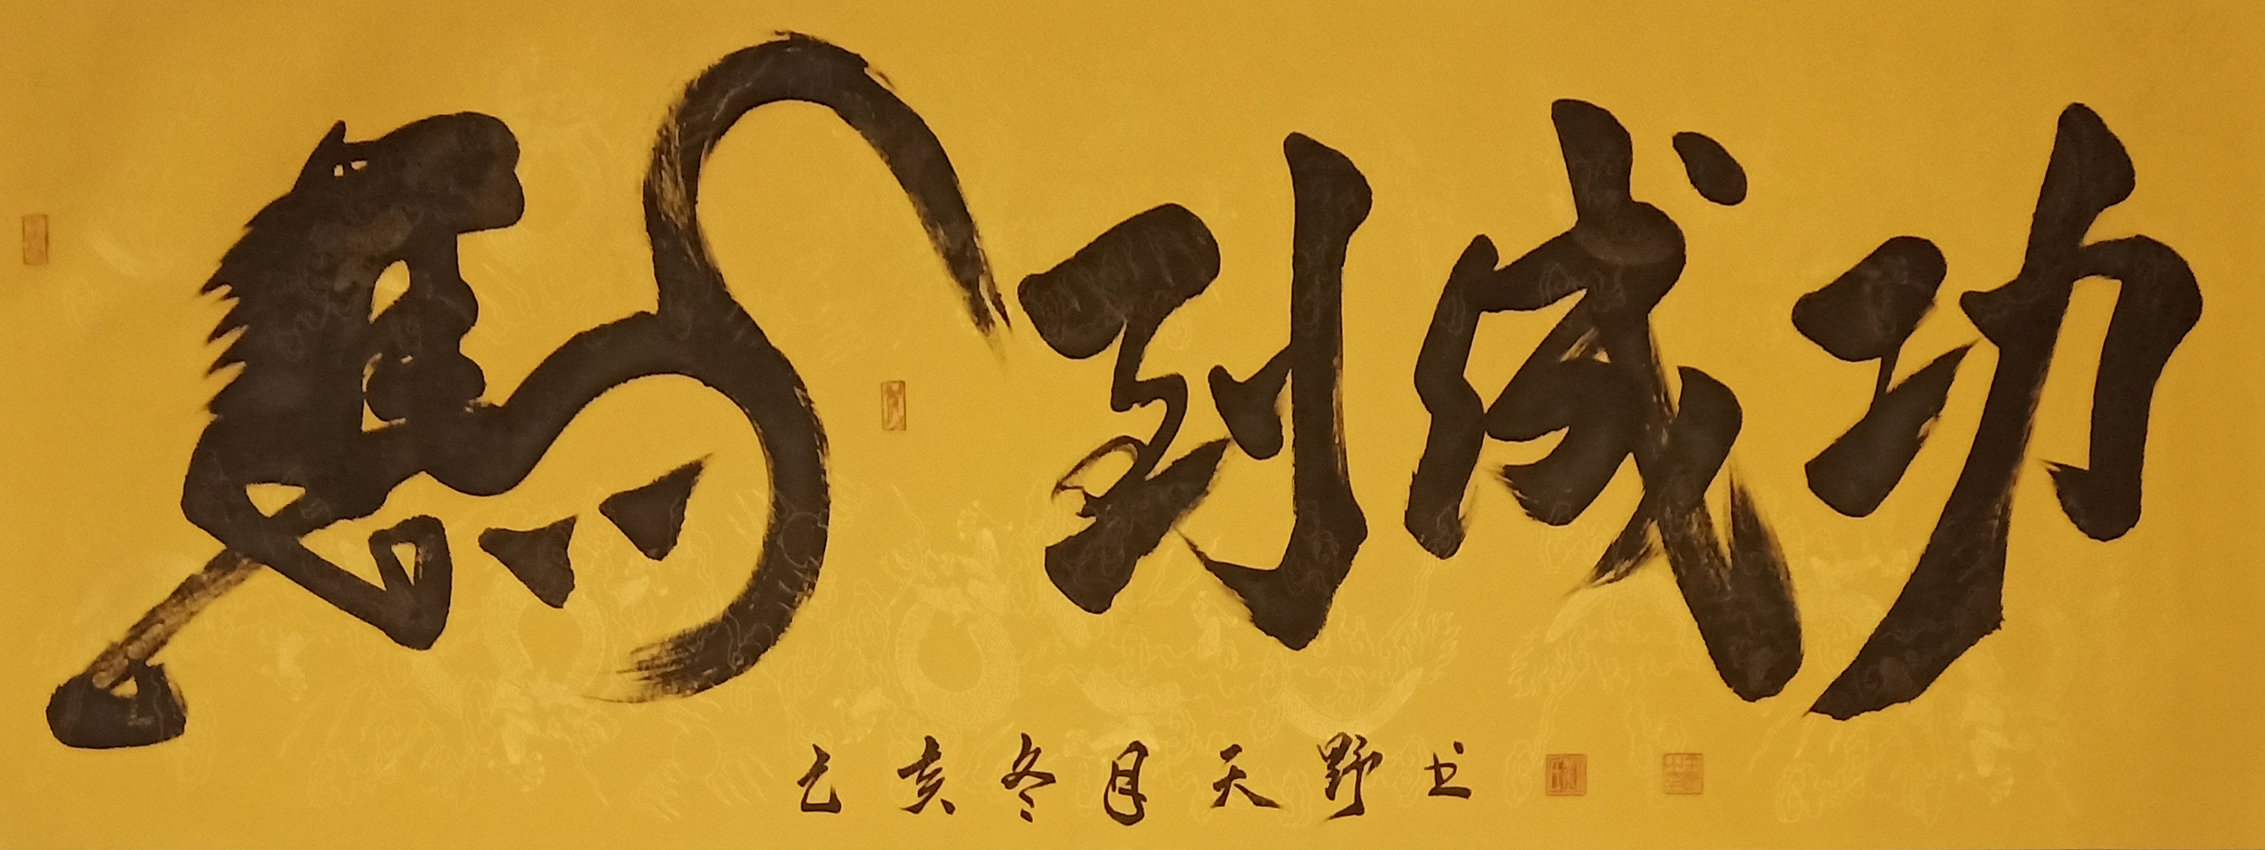 馬到成功
乙亥冬月天野书